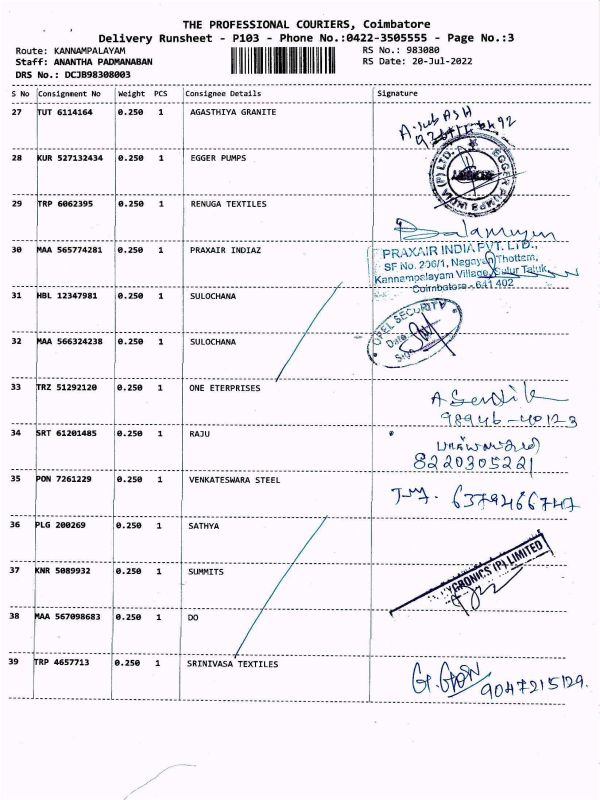 THE PROFESSIONAL COURIERS, Coimbatore
Delivery Runsheet - P103 - Phone No.:0422-3505555 - Page No.:3
Route: KANNAMPALAYAM
RS No.: 983080
Staff: ANANTHA PADMANABAN
RS Date: 20-Jul-2022
DRS No.: DCJB98308003
S No Consignment No Weight PCS Consignee Details Signature
27 TUT 6114164 0.250 1 AGASTHIYA GRANITE
28 KUR 527132434 0.250 1 EGGER PUMPS
EGGER PUMPS INDIA (P) LTD.
29 TRP 6062395 0.250 1 RENUGA TEXTILES
30 MAA 565774281 0.250 1 PRAXAIR INDIAZ
PRAXAIR INDIA PVT. LTD.,
SF No. 206/1, Nagayan Thottem,
Kannampalayam Village, Sulur Taluk,
Coimbatore - 641 402
31 HBL 12347981 0.250 1 SULOCHANA
OPEL SECURITY
Date
Sign
32 MAA 566324238 0.250 1 SULOCHANA
33 TRZ 51292120 0.250 1 ONE ETERPRISES
98946-40123
34 SRT 61201485 0.250 1 RAJU
8220305221
35 PON 7261229 0.250 1 VENKATESWARA STEEL
6379466747
36 PLG 200269 0.250 1 SATHYA
37 KNR 5089932 0.250 1 SUMMITS
(P) LIMITED
38 MAA 567098683 0.250 1 DO
39 TRP 4657713 0.250 1 SRINIVASA TEXTILES
9047215129.